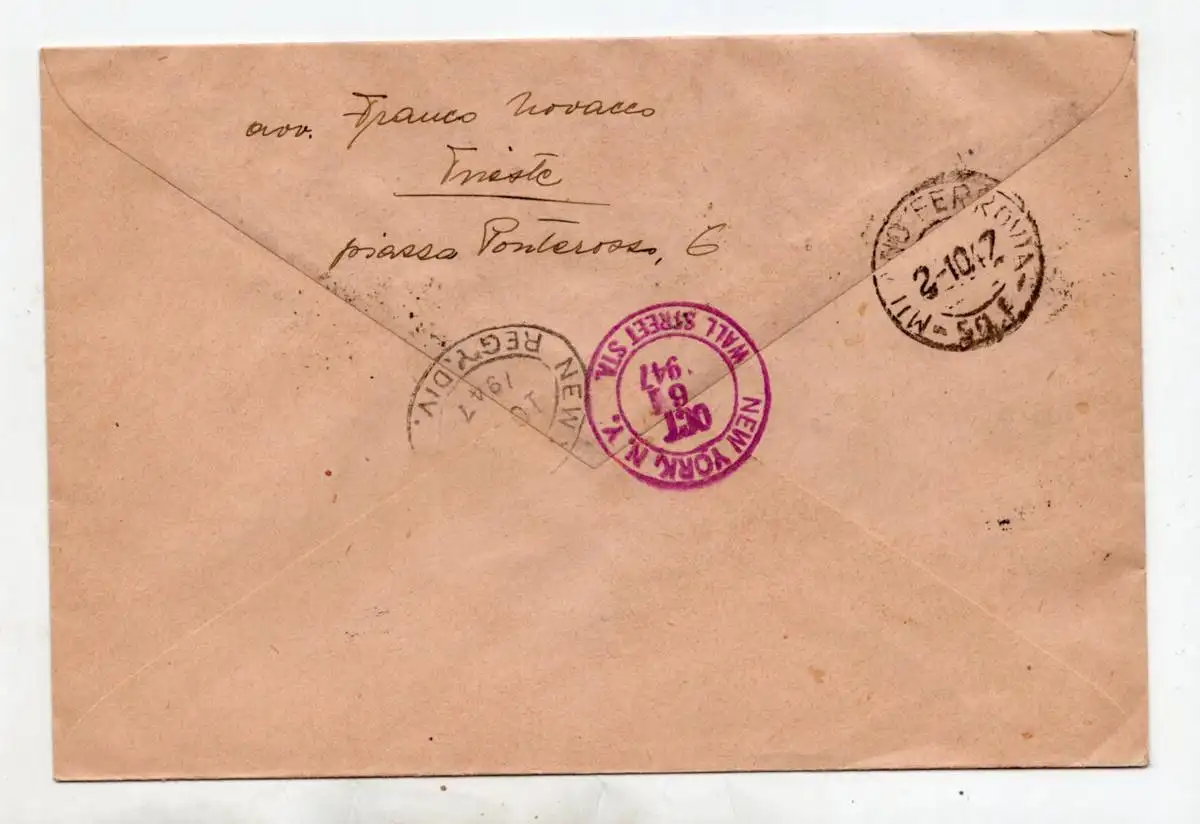 avv. Franco Novacco
Trieste
piazza Ponterosso, 6
MILANO FERROVIA
2-10.47
NEW REG'Y. DIV.
10
1947
WALL STREET STA.
1947
19
OCT
NEW YORK, N. Y.